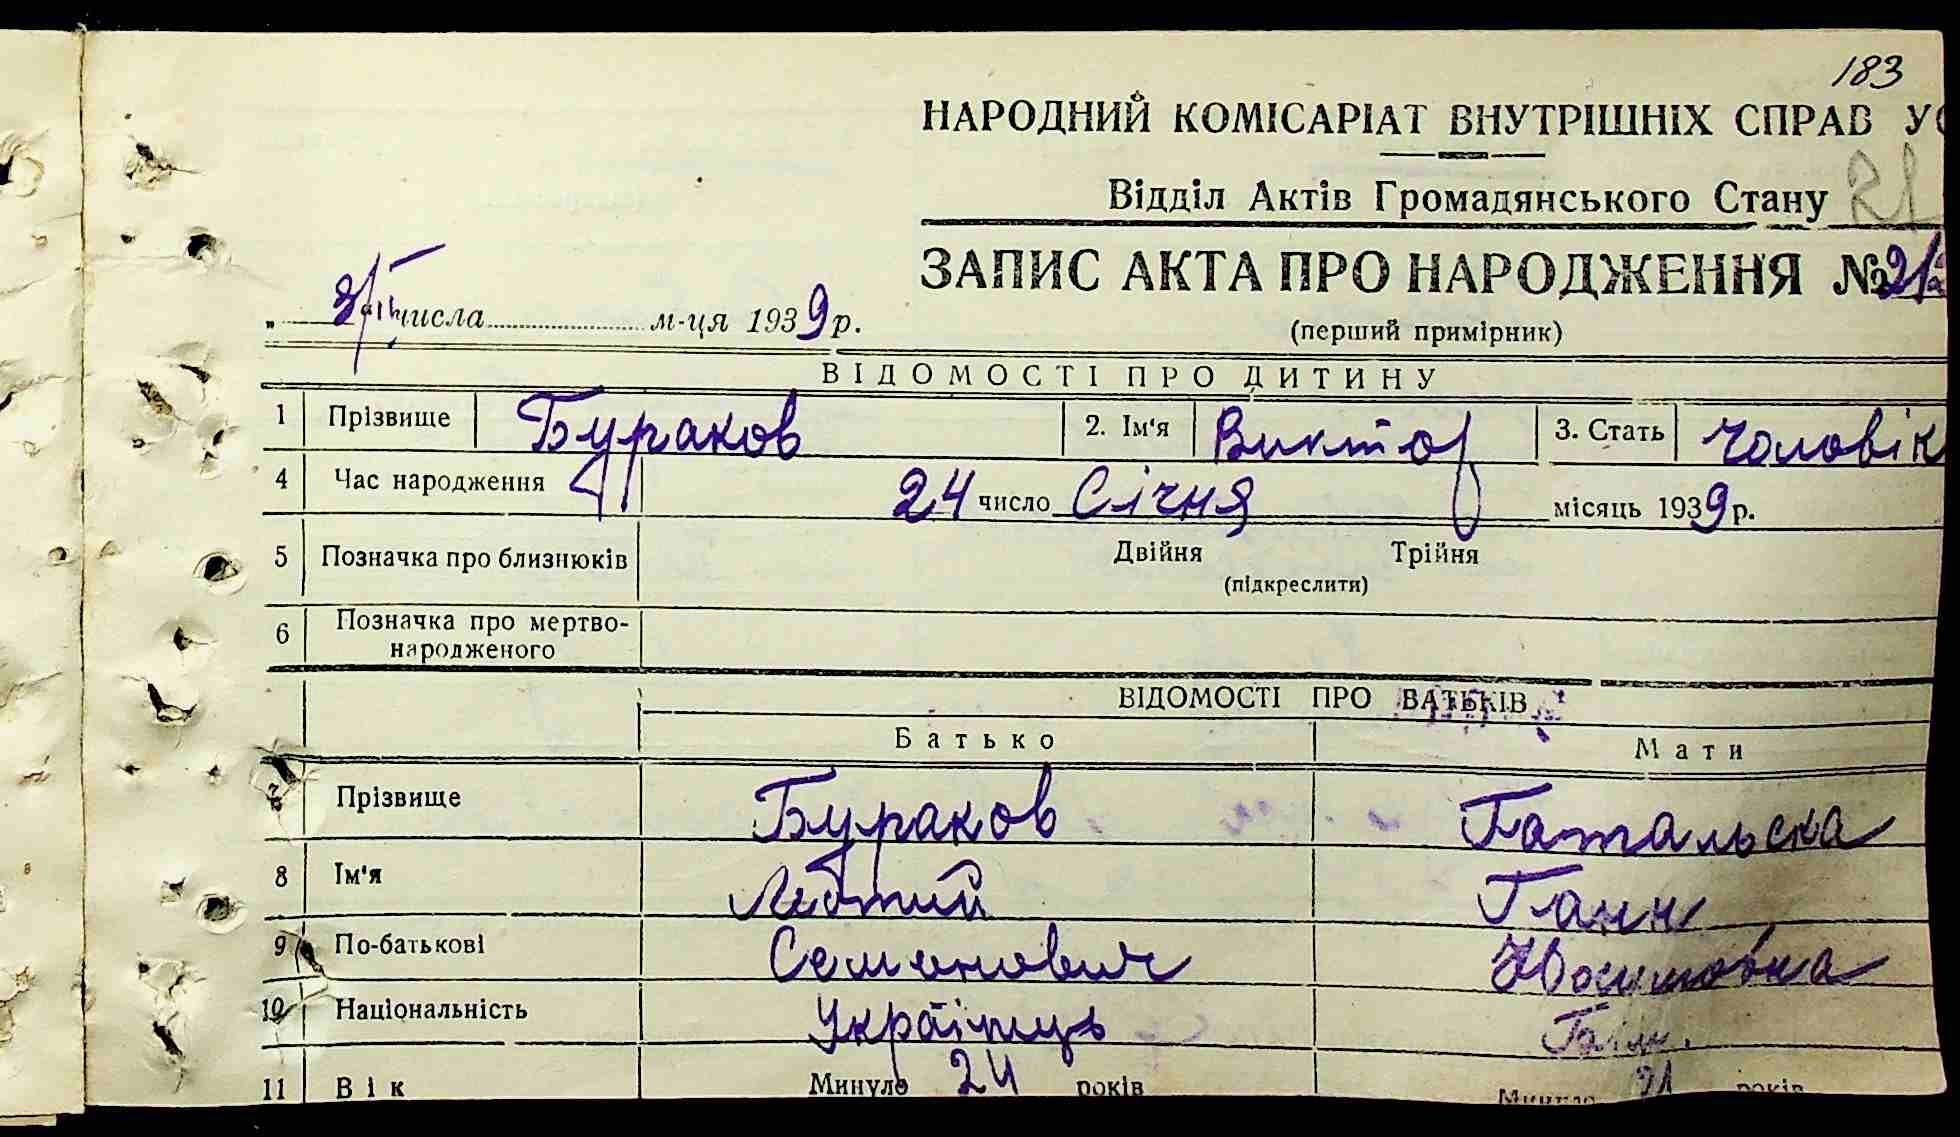 183
НАРОДНИЙ КОМІСАРІАТ ВНУТРІШНІХ СПРАВ
Відділ Актів Громадянського Стану
ЗАПИС АКТА ПРО НАРОДЖЕННЯ №
„ числа м-ця 1939 р.
(перший примірник)
ВІДОМОСТІ ПРО ДИТИНУ
1 Прізвище Бураков 2. Ім'я Виктор 3. Стать Чоловік
4 Час народження 24 число Січня місяць 1939 р.
5 Позначка про близнюків Двійня Трійня
(підкреслити)
6 Позначка про мертво-
народженого
ВІДОМОСТІ ПРО БАТЬКІВ
Батько Мати
7 Прізвище Бураков
8 Ім'я
9 По-батькові Семенович
10 Національність Українець
11 Вік Минуло 24 років Минуло 21 років